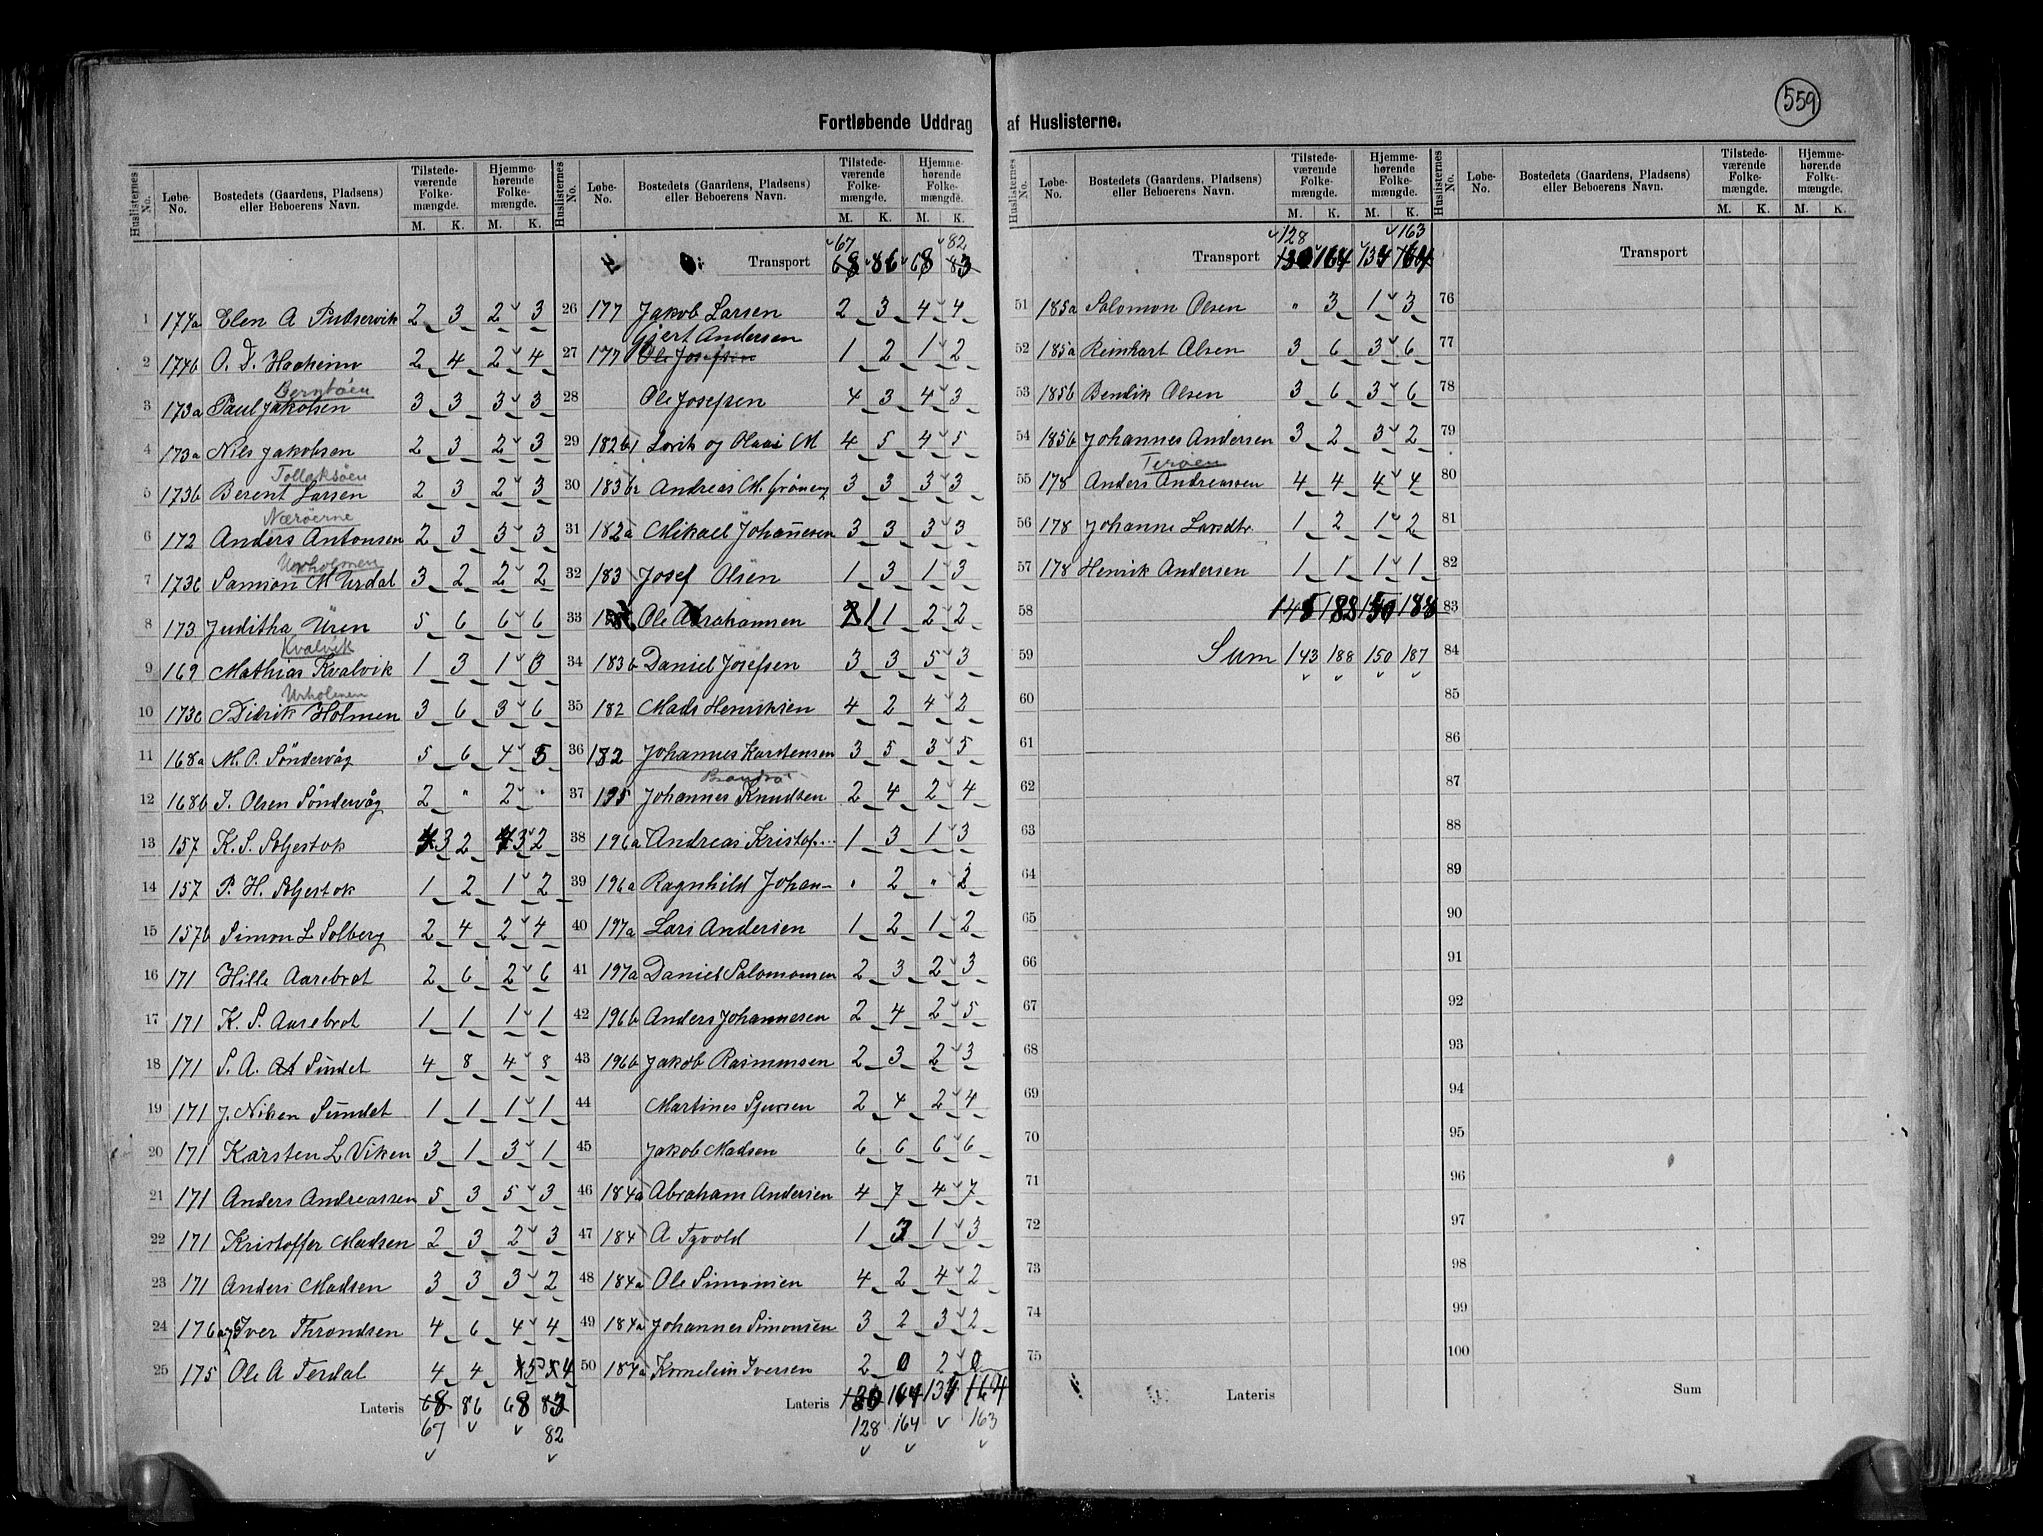 559
Fortløbende Uddrag af Huslisterne.
Huslisternes No. Løbe-No. Bostedets (Gaardens, Pladsens) eller Beboerens Navn. Tilstedeværende Folkemængde. Hjemmehørende Folkemængde. M. K. M. K.
1 174a Elen A Pudservik 2 3 2 3
2 174b O. D. Haaheim 2 4 2 4
Berntøen
3 173a Paul Jakobsen 3 3 3 3
4 173a Nils Jakobsen 2 3 2 3
Tollaksøen
5 173b Berent Larsen 2 3 2 3
Nærøerne
6 172 Anders Antonsen 2 3 3 3
Urholmen
7 173c Samson M Urdal 3 2 2 2
8 173 Juditha Üren 5 6 6 6
Kvalvik
9 169 Mathias Kvalvik 1 3 1 3
Urholmen
10 173c Didrik Holmen 3 6 3 6
11 168a M. O. Söndervåg 5 6 4 5
12 168b I. Olsen Söndervåg 2 " 2 "
13 157 K. S. Soljestok 3 2 3 2
14 157 P. H. Soljestok 1 2 1 2
15 157b Simon L Solberg 2 4 2 4
16 171 Hille Aarebrot 2 6 2 6
17 171 K. S. Aarebrot 1 1 1 1
18 171 S. A. Sundet 4 8 4 8
19 171 J. Niken Sundet 1 1 1 1
20 171 Karsten L Viken 3 1 3 1
21 171 Anders Andreassen 5 3 5 3
22 171 Kristoffer Madsen 2 3 2 3
23 171 Anders Madsen 3 3 3 2
24 176a Iver Throndsen 4 6 4 4
25 175 Ole A Terdal 4 4 5 4
Lateris 68 86 68 83
67 82
Huslisternes No. Løbe-No. Bostedets (Gaardens, Pladsens) eller Beboerens Navn. Tilstedeværende Folkemængde. Hjemmehørende Folkemængde. M. K. M. K.
67 82
Transport 68 86 68 83
26 177 Jakob Larsen 2 3 4 4
Gjert Andersen
27 177 Ole Josefsen 1 2 1 2
28 Ole Josefsen 4 3 4 3
29 182b1 Lovik og Olaai M 4 5 4 5
30 183b2 Andreas M. Grönevg 3 3 3 3
31 182a Mikael Johannesen 3 3 3 3
32 183 Josef Olsen 1 3 1 3
33 Ole Abrahamsen 1 1 2 2
34 183b Daniel Josefsen 3 3 5 3
35 182 Mads Henriksen 4 2 4 2
36 182 Johannes Karstensen 3 5 3 5
Brandsö
37 195 Johannes Knudsen 2 4 2 4
38 196a Andreas Kristof... 1 3 1 3
39 196a Ragnhild Johan- " 2 " 2
40 197a Lars Andersen 1 2 1 2
41 197a Daniel Salomonsen 2 3 2 3
42 196b Anders Johannesen 2 4 2 5
43 196b Jakob Rasmussen 2 3 2 3
44 Martines Sjursen 2 4 2 4
45 Jakob Madsen 6 6 6 6
46 184a Abraham Andersen 4 7 4 7
47 184 A Tyvold 1 3 1 3
48 184a Ole Simonsen 4 2 4 2
49 184a Johannes Simonsen 3 2 3 2
50 184a Kornelius Iversen 2 0 2 0
Lateris 130 164 134 164
128 164 163
Huslisternes No. Løbe-No. Bostedets (Gaardens, Pladsens) eller Beboerens Navn. Tilstedeværende Folkemængde. Hjemmehørende Folkemængde. M. K. M. K.
128 163
Transport 130 164 134 164
51 185a Salomon Olsen " 3 1 3
52 185a Reinhart Olsen 3 6 3 6
53 185b Bendik Olsen 3 6 3 6
54 185b Johannes Andersen 3 2 3 2
Terøen
55 178 Anders Andreassen 4 4 4 4
56 178 Johanne Larsdtr. 1 2 1 2
57 178 Henrik Andersen 1 1 1 1
58 145 188 150 188
59 Sum 143 188 150 187
60
61
62
63
64
65
66
67
68
69
70
71
72
73
74
75
Lateris
Huslisternes No. Løbe-No. Bostedets (Gaardens, Pladsens) eller Beboerens Navn. Tilstedeværende Folkemængde. Hjemmehørende Folkemængde. M. K. M. K.
Transport
76
77
78
79
80
81
82
83
84
85
86
87
88
89
90
91
92
93
94
95
96
97
98
99
100
Sum